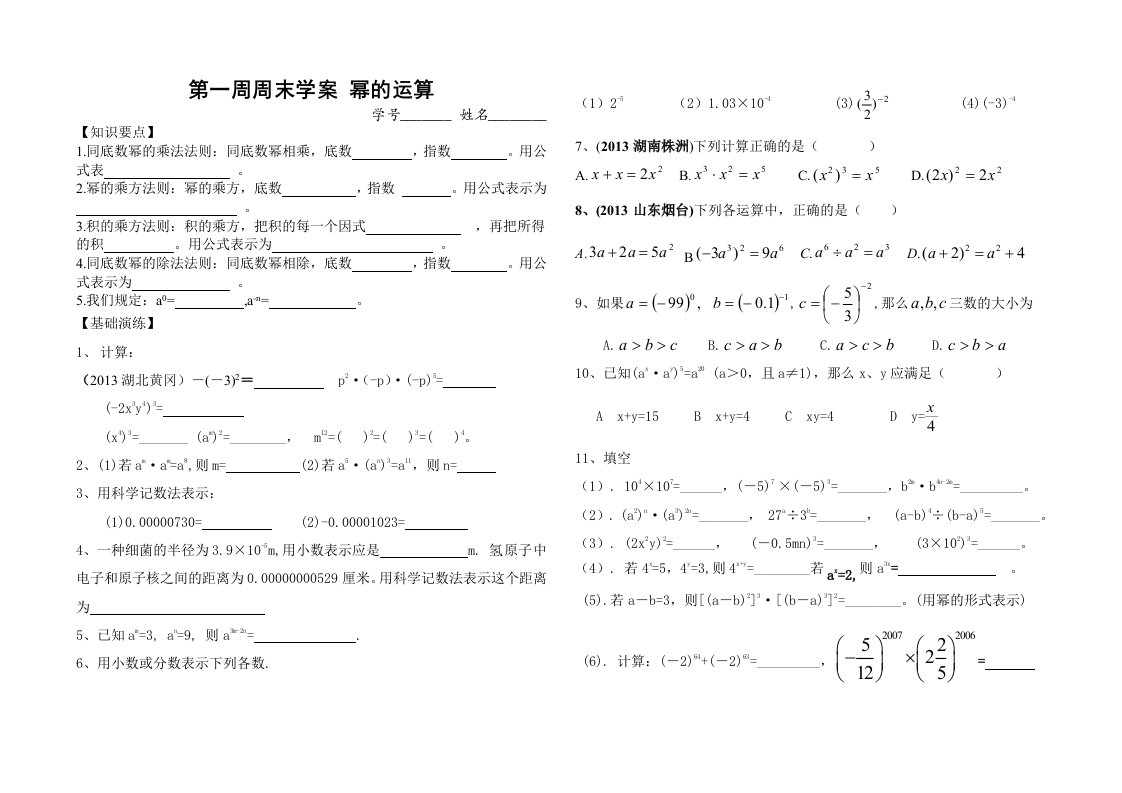 第一周周末学案 幂的运算
学号______ 姓名_______
【知识要点】
1.同底数幂的乘法法则：同底数幂相乘，底数________，指数_______。用公
式表________________ 。
2.幂的乘方法则：幂的乘方，底数________，指数 ______。用公式表示为
____________________ 。
3.积的乘方法则：积的乘方，把积的每一个因式____________ ，再把所得
的积_________。用公式表示为____________________ 。
4.同底数幂的除法法则：同底数幂相除，底数________，指数_______。用公
式表示为____________ 。
5.我们规定：a⁰=_________,a⁻ⁿ=___________。
【基础演练】
1、 计算：
（2013 湖北黄冈）－(－3)²＝__________ p²·（-p）·(-p)⁵=________
(-2x³y⁴)³=____________
(x⁴)³=_______ (aᵐ)²=________， m¹²=( )²=( )³=( )⁴。
2、(1)若 aᵐ·aᵐ=a⁸,则 m=__________ (2)若 a⁵·(aⁿ)³=a¹¹，则 n=_____
3、用科学记数法表示：
(1)0.00000730=__________ (2)-0.00001023=_________
4、一种细菌的半径为 3.9×10⁻⁵m,用小数表示应是____________m. 氢原子中
电子和原子核之间的距离为 0.00000000529 厘米。用科学记数法表示这个距离
为_________________________
5、已知 aᵐ=3, aⁿ=9, 则 a³ᵐ⁻²ⁿ=______________.
6、用小数或分数表示下列各数.
（1）2⁻⁵ （2）1.03×10⁻⁴ (3)(3/2)⁻² (4)(-3)⁻⁴
7、(2013 湖南株洲)下列计算正确的是（ ）
A. x + x = 2x² B. x³ · x² = x⁵ C. (x²)³ = x⁵ D. (2x)² = 2x²
8、(2013 山东烟台)下列各运算中，正确的是（ ）
A. 3a + 2a = 5a² B (−3a³)² = 9a⁶ C. a⁶ ÷ a² = a³ D. (a + 2)² = a² + 4
9、如果 a = (−99)⁰, b = (−0.1)⁻¹, c = (−5/3)⁻²,那么 a,b,c 三数的大小为
A. a > b > c B. c > a > b C. a > c > b D. c > b > a
10、已知(aˣ·aʸ)⁵=a²⁰ (a＞0，且 a≠1)，那么 x、y 应满足（ ）
A x+y=15 B x+y=4 C xy=4 D y=x/4
11、填空
（1）. 10⁴×10⁷=______，(－5)⁷ ×(－5)³=_______，b²ᵐ·b⁴ⁿ⁻²ᵐ=_________。
（2）. (a²)ⁿ·(a³)²ⁿ=_______， 27ᵃ÷3ᵇ=_______， (a-b)⁴÷(b-a)⁵=_______。
（3）. (2x²y)²=______， (-0.5mn)³=_______， (3×10²)³=______。
（4）. 若 4ˣ=5，4ʸ=3,则 4ˣ⁺ʸ=________若 aˣ=2, 则 a³ˣ=______________ 。
(5).若 a－b=3，则[(a－b)²]³·[(b－a)³]²=________。(用幂的形式表示)
(6). 计算：(－2)⁶⁴+(－2)⁶³=_________，(−5/12)²⁰⁰⁷×(2 2/5)²⁰⁰⁶=_______